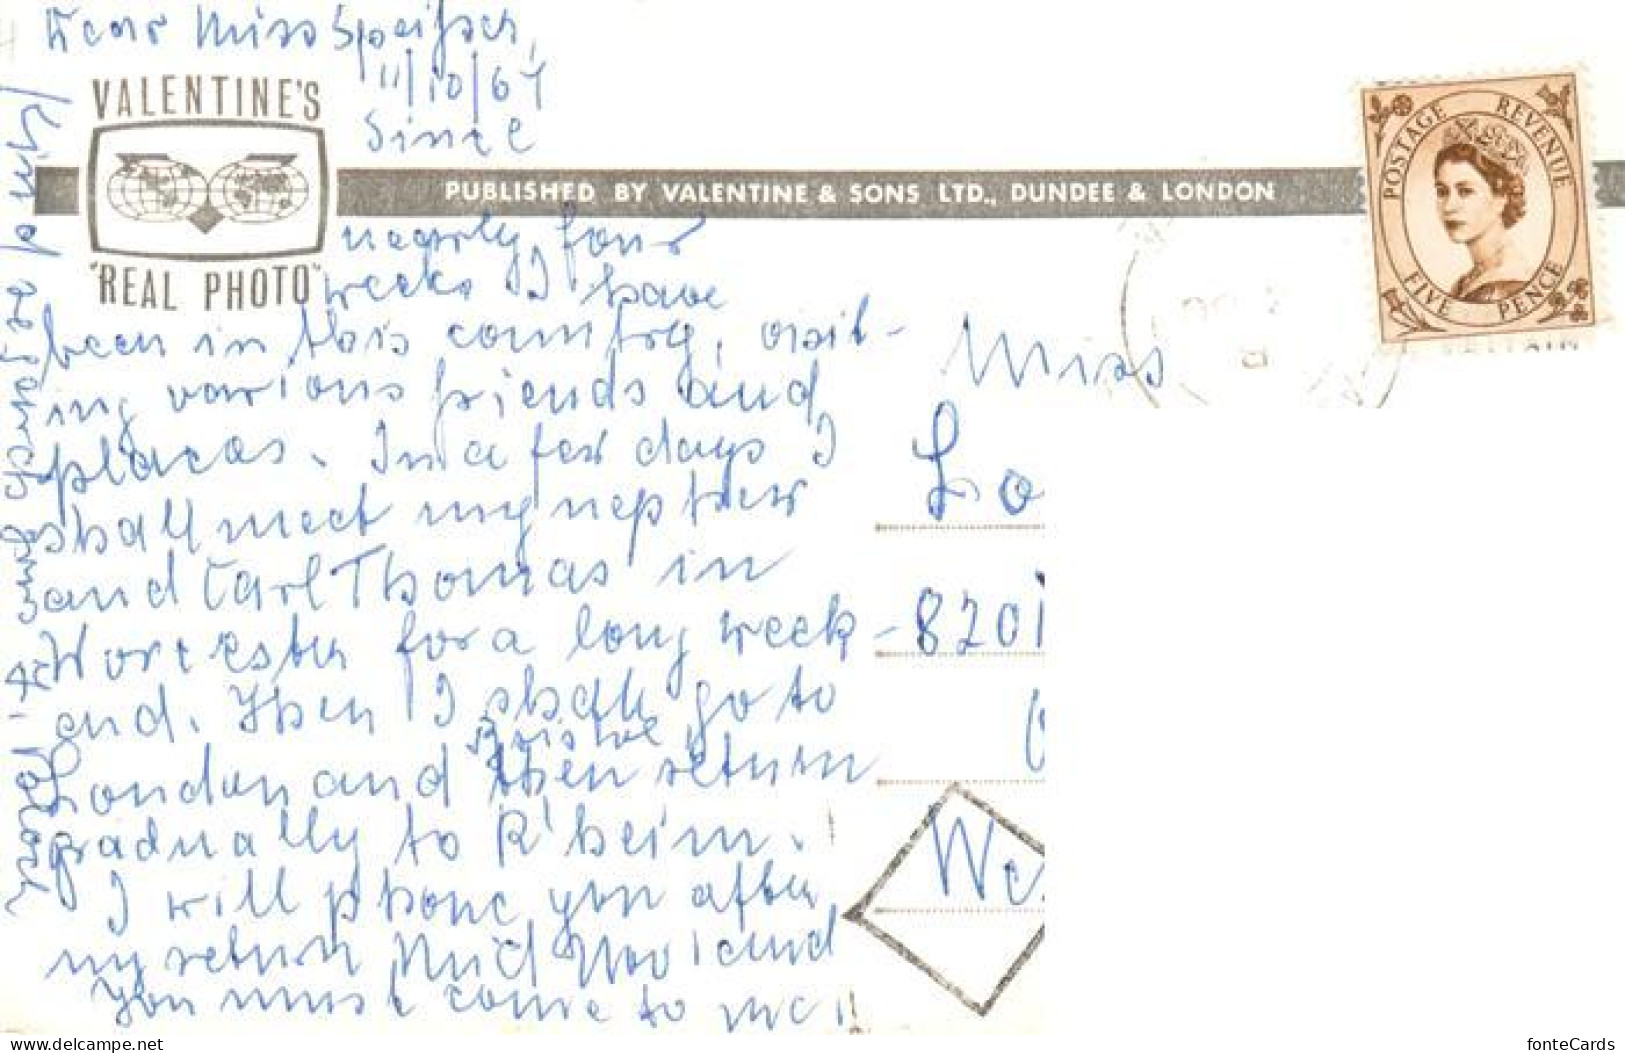 Dear Miss Speifser,
11/10/64
VALENTINE'S
"REAL PHOTO"
PUBLISHED BY VALENTINE & SONS LTD., DUNDEE & LONDON
POSTAGE REVENUE
FIVE PENCE
Since
nearly four
weeks I have
been in this country, visit-
ing various friends and
places. In a few days I
shall meet my nephew
and Carl Thomas in
Worcester for a long week-
end. Then I shall go to
Bristol,
London and then return
gradually to R'heim.
I will phone you after
my return Mid Nov and
you must come to me!!
Miss
Lo
8201
We
fonteCards